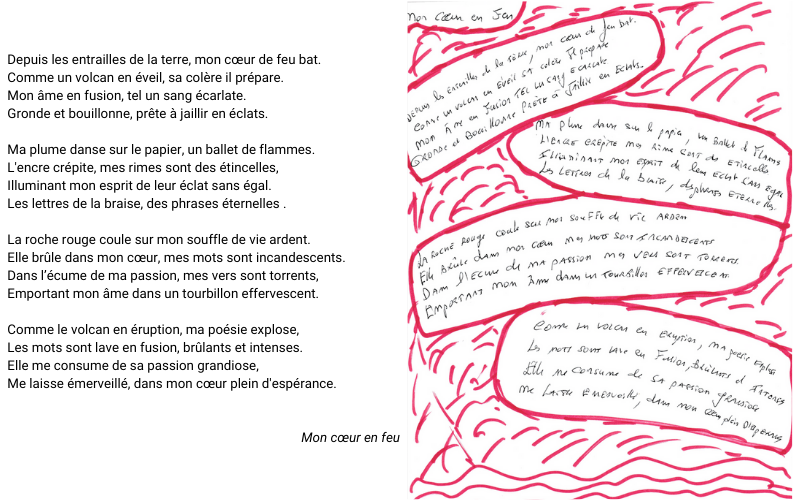 Depuis les entrailles de la terre, mon cœur de feu bat.
Comme un volcan en éveil, sa colère il prépare.
Mon âme en fusion, tel un sang écarlate.
Gronde et bouillonne, prête à jaillir en éclats.
Ma plume danse sur le papier, un ballet de flammes.
L'encre crépite, mes rimes sont des étincelles,
Illuminant mon esprit de leur éclat sans égal.
Les lettres de la braise, des phrases éternelles .
La roche rouge coule sur mon souffle de vie ardent.
Elle brûle dans mon cœur, mes mots sont incandescents.
Dans l'écume de ma passion, mes vers sont torrents,
Emportant mon âme dans un tourbillon effervescent.
Comme le volcan en éruption, ma poésie explose,
Les mots sont lave en fusion, brûlants et intenses.
Elle me consume de sa passion grandiose,
Me laisse émerveillé, dans mon cœur plein d'espérance.
Mon cœur en feu
Mon cœur en feu
Depuis les entrailles de la terre, mon cœur de feu bat.
Comme un volcan en éveil sa colère il prépare
Mon Âme en fusion tel un sang écarlate
Gronde et Bouillonne prête à jaillir en éclats.
Ma plume danse sur le papier, un ballet de flammes
L'encre crépite mes rime sont des étincelles
Illuminant mon esprit de leur éclat sans égal
Les lettres de la braise, des phrases éternelles.
La roche rouge coule sur mon souffle de vie ardent
Elle brûle dans mon cœur mes mots sont incandescents
Dans l'écume de ma passion mes vers sont torrents
Emportant mon âme dans un tourbillon effervescent
Comme un volcan en éruption, ma poésie explose
Les mots sont lave en fusion, brûlants et intenses
Elle me consume de sa passion grandiose
Me laisse émerveillé, dans mon cœur plein